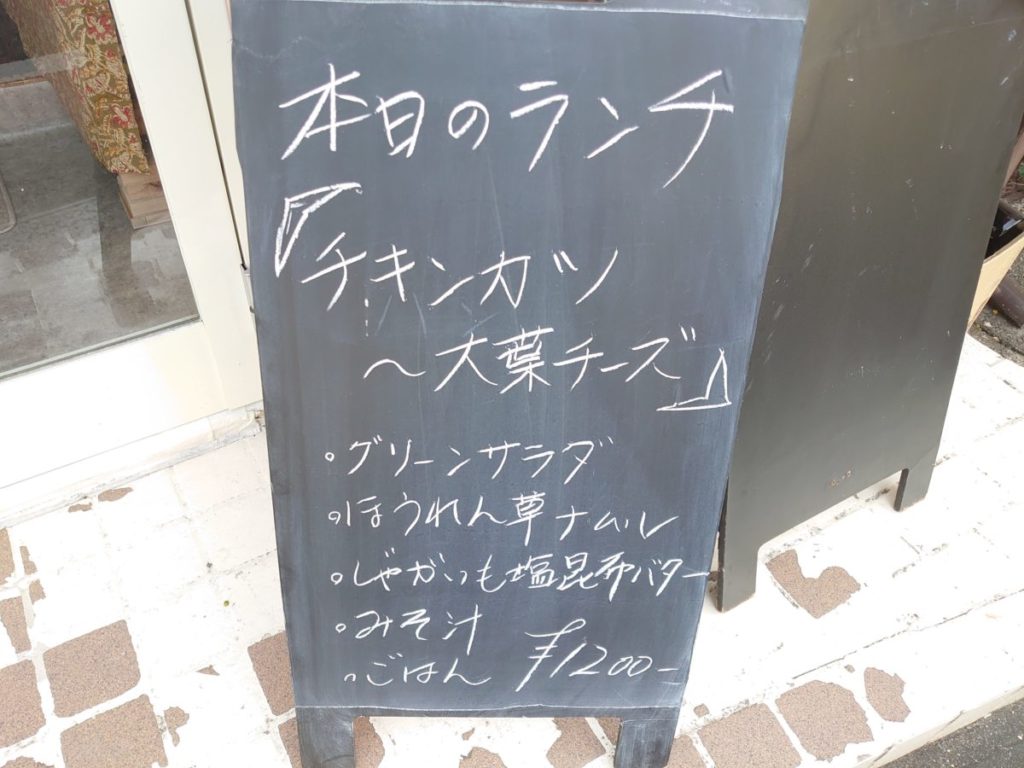 本日のランチ
『チキンカツ
〜大葉チーズ』
・グリーンサラダ
・ほうれん草ナムル
・じゃがいも塩昆布バター
・みそ汁
・ごはん ¥1200-